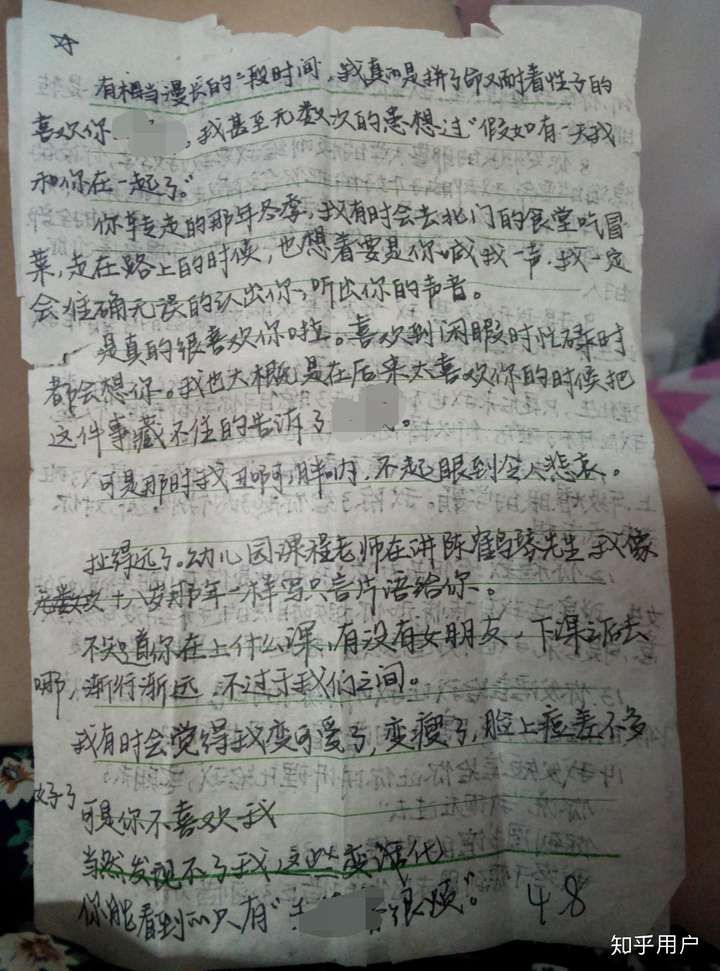 ☆
有相当漫长的一段时间，我真的是拼了命又耐着性子的
喜欢你 。我甚至无数次的意想过“假如有一天我
和你在一起了。”
你转走的那年冬季，我有时会去北门的食堂吃冒
菜，走在路上的时候，也想着要是你喊我一声，我一定
会准确无误的认出你，听出你的声音。
是真的很喜欢你啦。喜欢到闲暇时忙碌时
都会想你。我也大概是在后来太喜欢你的时候把
这件事藏不住的告诉了 。
可是那时我丑啊，胖呐，不起眼到令人悲哀。
扯得远了。幼儿园课程老师在讲陈鹤琴先生 我像
十八岁那年一样写只言片语给你。
不知道你在上什么课，有没有女朋友，下课之后去
哪，渐行渐远，不过于我们之间。
我有时会觉得我变可爱了，变瘦了，脸上痘差不多
好了
可是你不喜欢我
当然发现不了我这些变化
你能看到的只有“ 很烦”。 48
知乎用户